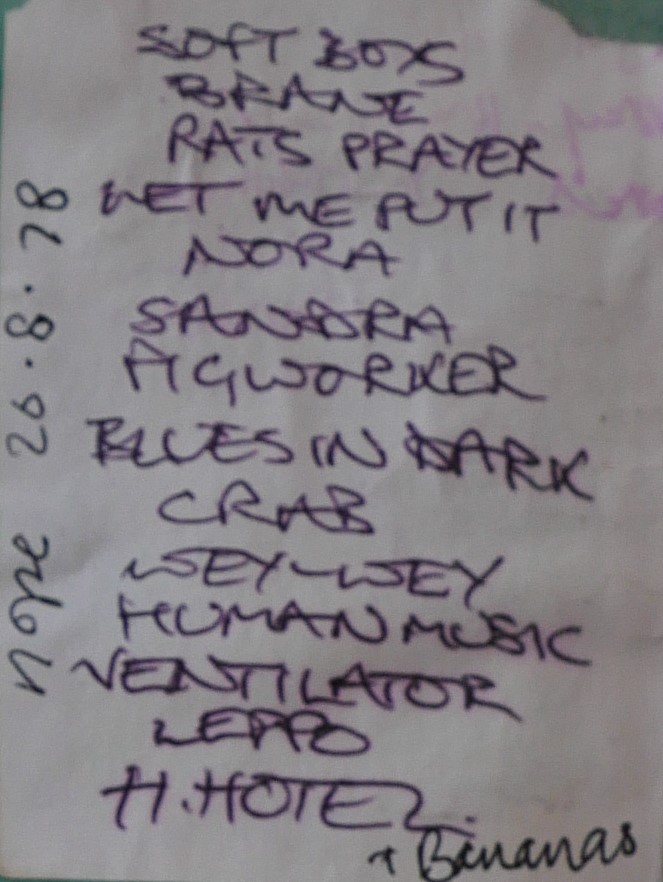 SOFT BOYS
BRANE
RATS PRAYER
LET ME PUT IT
NORA
SANDRA
PIGWORKER
BLUES IN DARK
CRAB
WEY-WEY
HUMAN MUSIC
VENTILATOR
LEPPO
H.HOTEL.
+ Bananas
nope 26.8.78